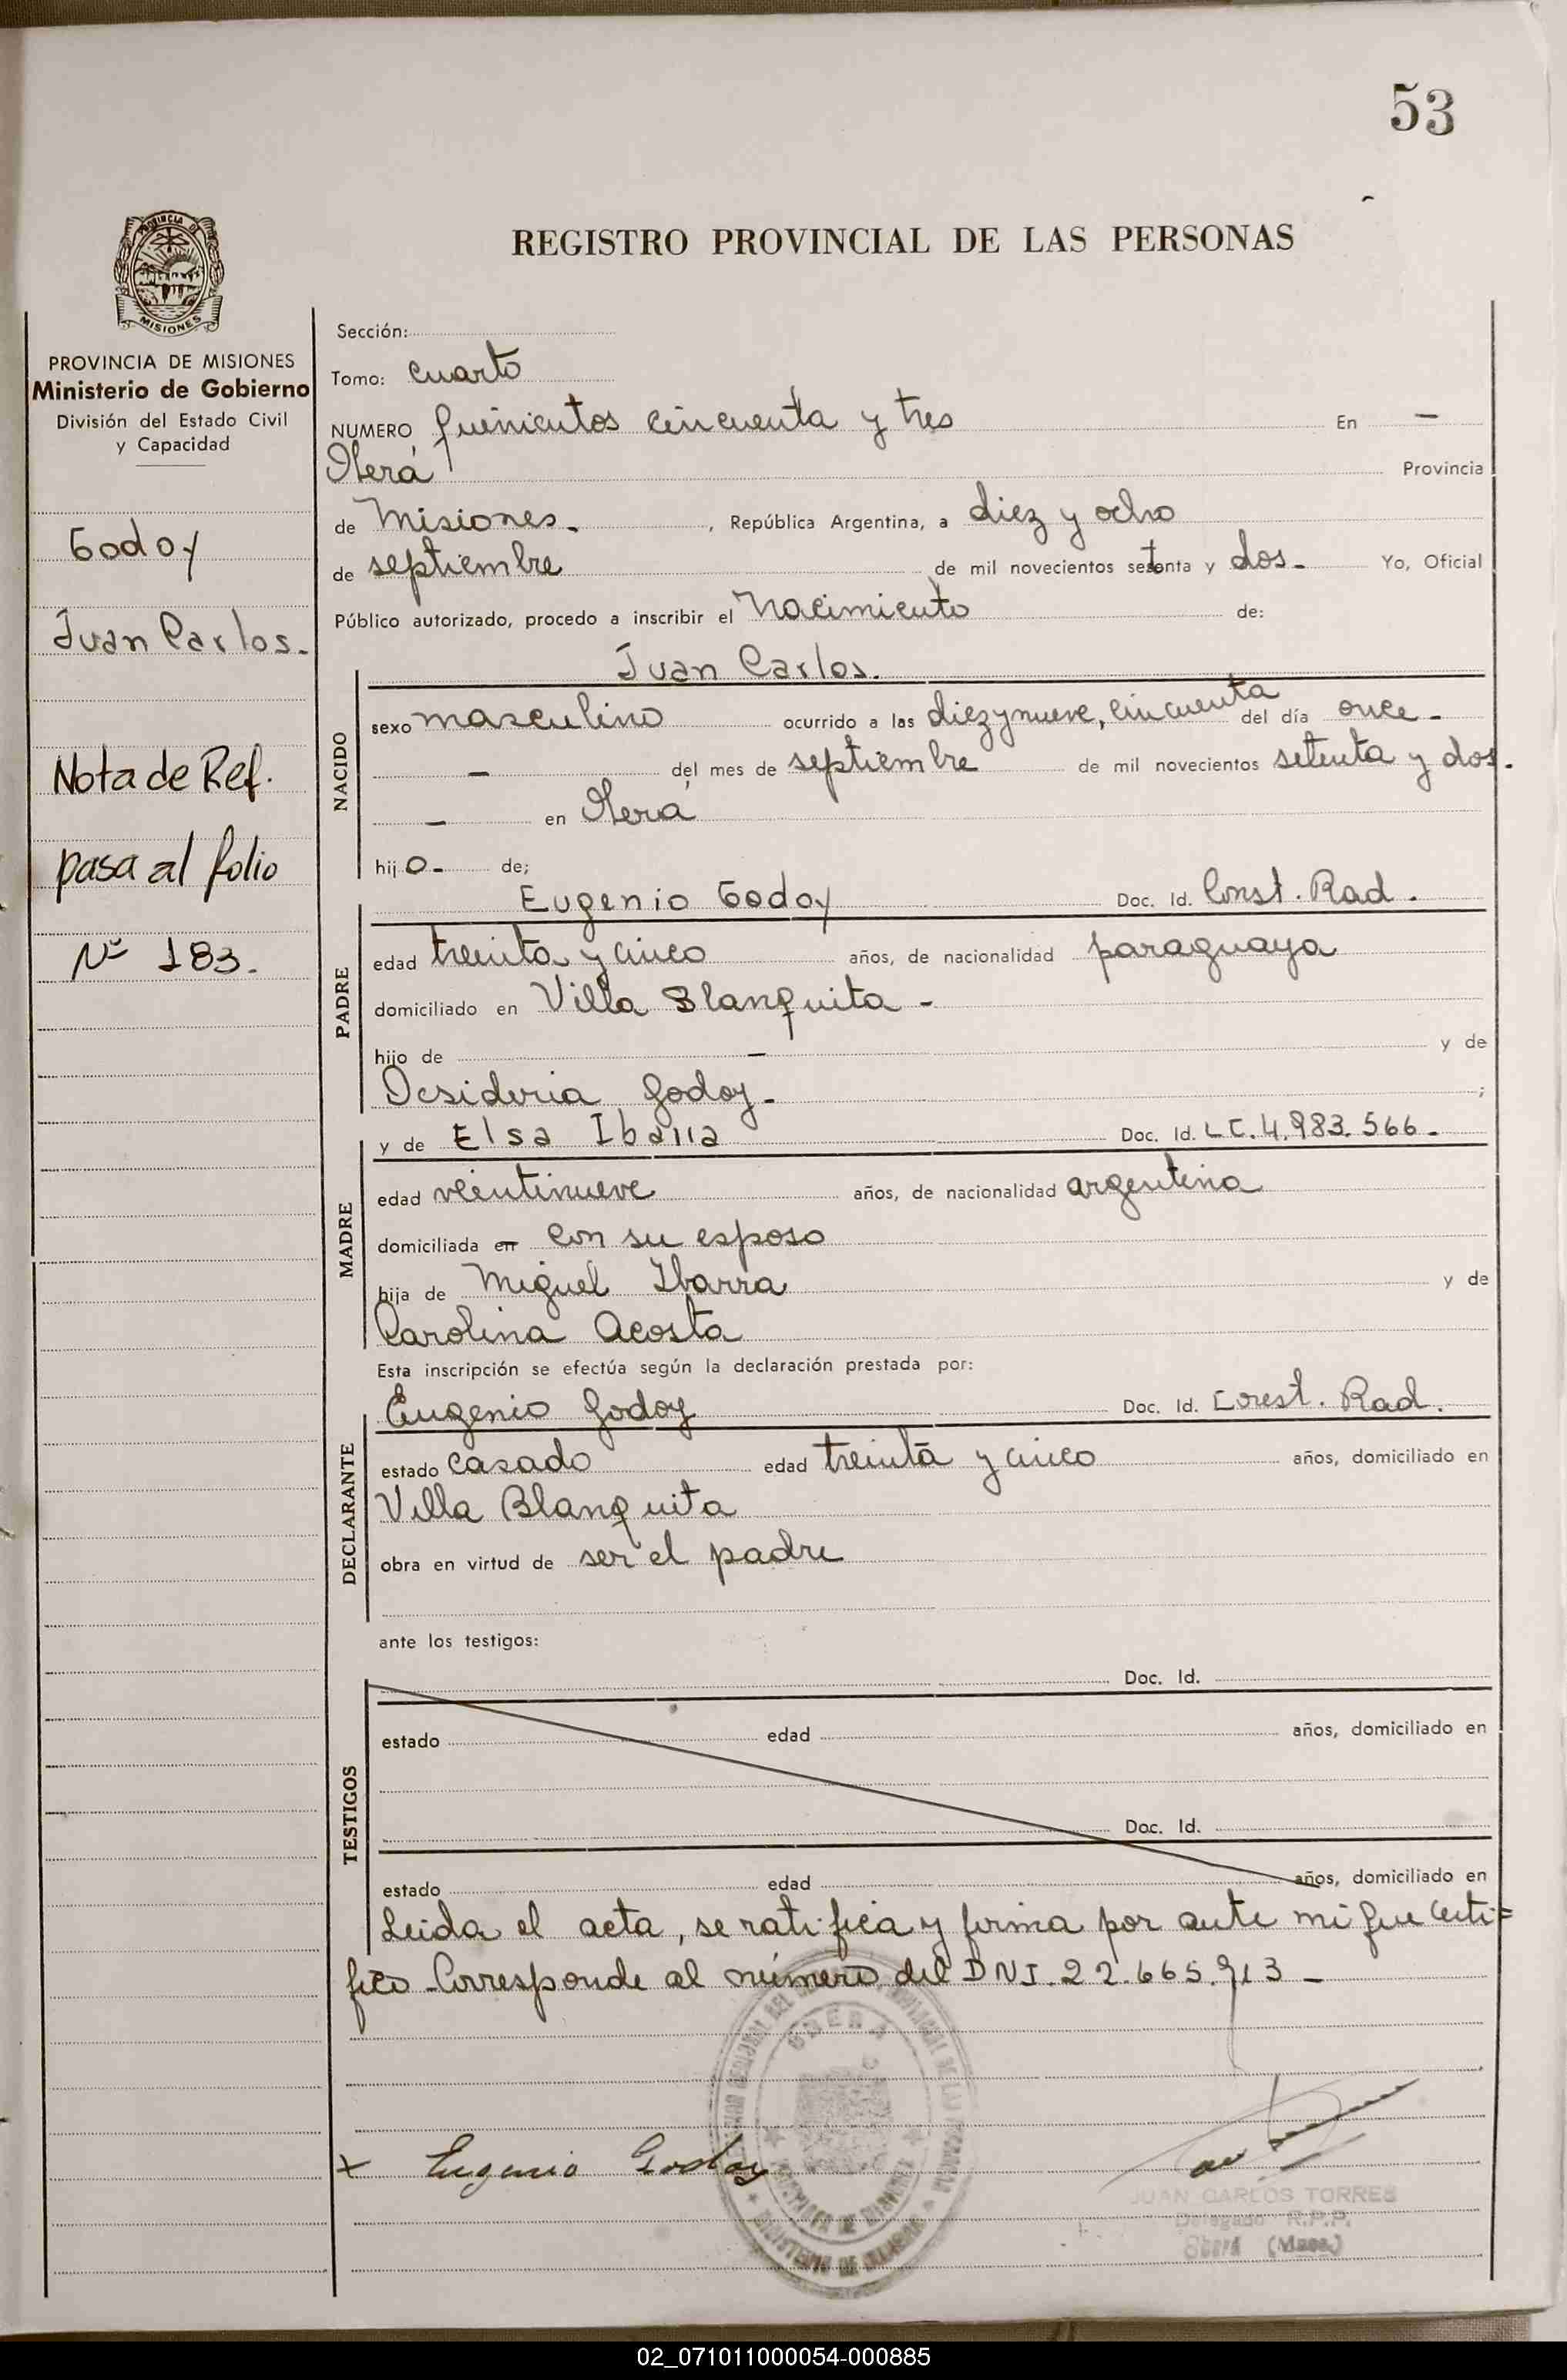 53
REGISTRO PROVINCIAL DE LAS PERSONAS
PROVINCIA DE
MISIONES
PROVINCIA DE MISIONES
Ministerio de Gobierno
División del Estado Civil
y Capacidad
Godoy
Juan Carlos.
Nota de Ref.
pasa al folio
Nº 183.
Sección:
Tomo: Cuarto
NUMERO Quinientos Cincuenta y tres En -
Oberá Provincia
de Misiones. , República Argentina, a diez y ocho
de septiembre de mil novecientos setenta y dos. Yo, Oficial
Público autorizado, procedo a inscribir el Nacimiento de:
Juan Carlos.
NACIDO
sexo masculino ocurrido a las diez y nueve, cincuenta del día once -
- del mes de septiembre de mil novecientos setenta y dos.
- en Oberá
hijo - de;
Eugenio Godoy Doc. Id. Const. Rad.
PADRE
edad treinta y cinco años, de nacionalidad paraguaya
domiciliado en Villa Blanquita -
hijo de - y de
Desideria Godoy. ;
y de Elsa Ibarra Doc. Id. L.C. 4.983.566.
MADRE
edad veintinueve años, de nacionalidad argentina
domiciliada en con su esposo
hija de Miguel Ibarra y de
Carolina Acosta
Esta inscripción se efectúa según la declaración prestada por:
Eugenio Godoy Doc. Id. Const. Rad.
DECLARANTE
estado casado edad treinta y cinco años, domiciliado en
Villa Blanquita
obra en virtud de ser el padre
ante los testigos:
Doc. Id.
TESTIGOS
estado edad años, domiciliado en
Doc. Id.
estado edad años, domiciliado en
Leida el acta, se ratifica y firma por ante mi que certi=
fico - Corresponde al número del DNI. 22.665.913 -
x Eugenio Godoy
OBERA
JUAN CARLOS TORRES
Delegado R.P.P.
Oberá (Mnes.)
02_071011000054-000885